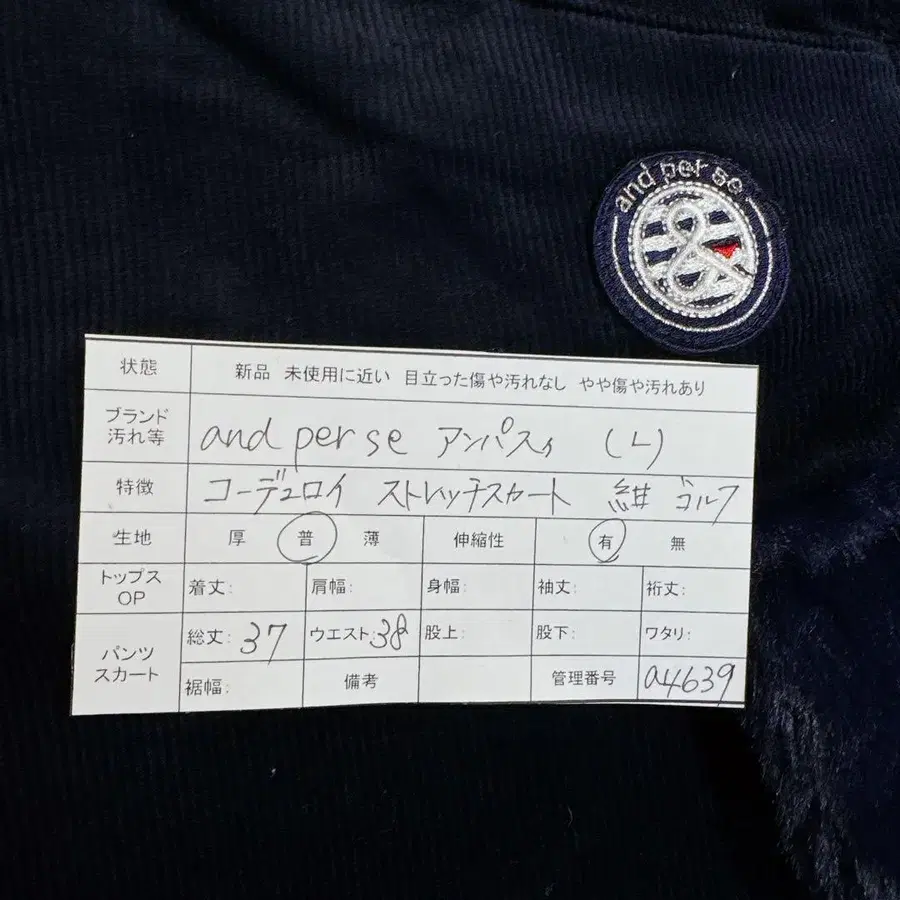 and per se
&
状態 新品 未使用に近い 目立った傷や汚れなし やや傷や汚れあり
ブランド
汚れ等 and per se アンパスィ (L)
特徴 コーデュロイ ストレッチスカート 紺 ゴルフ
生地 厚 普 薄 伸縮性 有 無
トップス
OP 着丈: 肩幅: 身幅: 袖丈: 裄丈:
パンツ
スカート
総丈: 37 ウエスト: 38 股上: 股下: ワタリ:
裾幅: 備考 管理番号 a4639